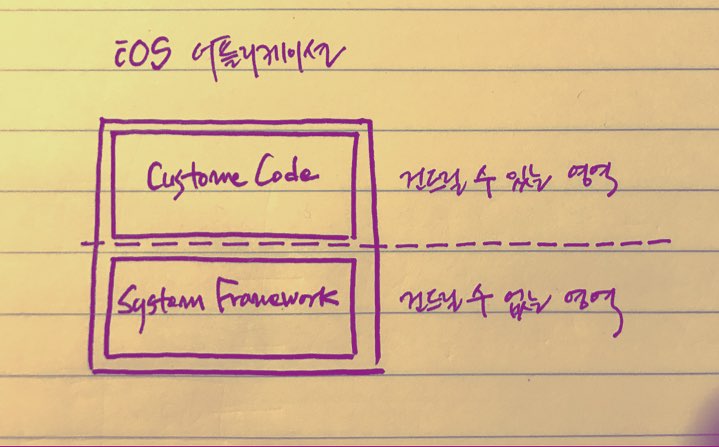 iOS 어플리케이션
Custome Code 건드릴 수 있는 영역
System Framework 건드릴 수 없는 영역